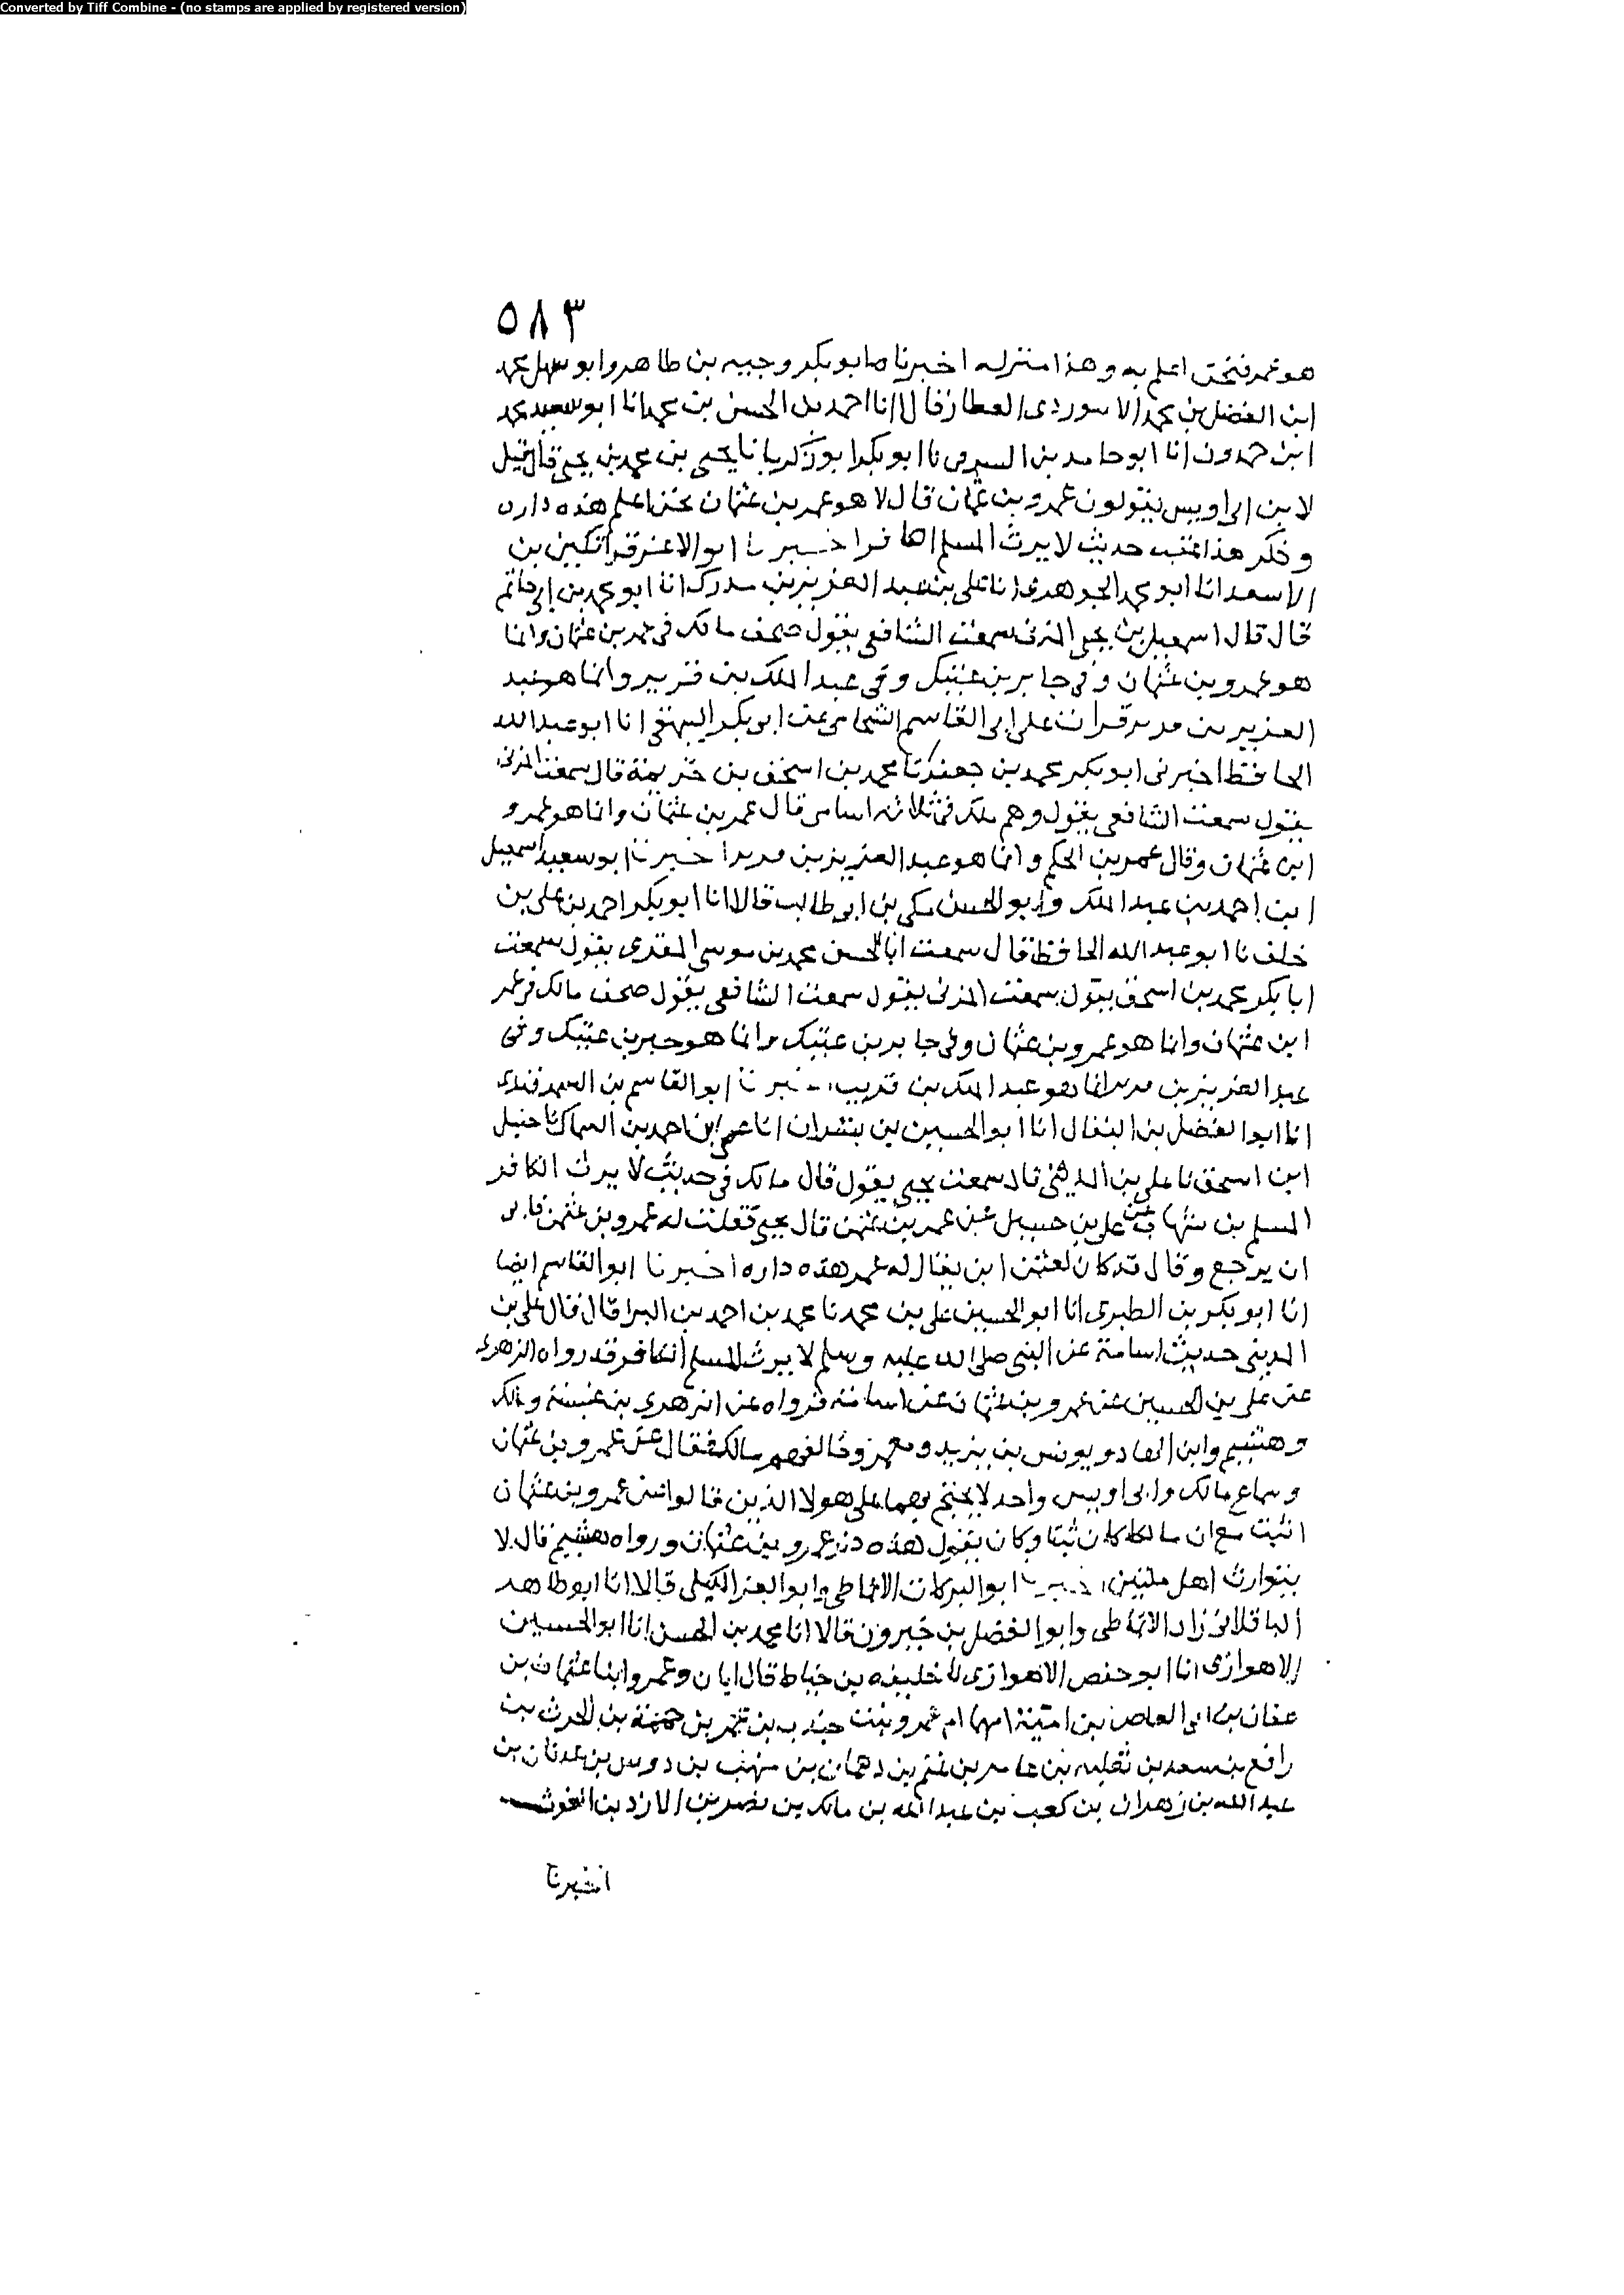 Converted by Tiff Combine - (no stamps are applied by registered version)
٥٨٣
هو عمر فنحن اعلم به وهذا منزله اخبرناه ابو بكر وجيه بن طاهر وابو سهل محمد
ابن الفضل بن محمد الابيوردي العطار قالا انا احمد بن الحسن بن محمد انا ابو سعيد محمد
ابن حمدون انا ابو حامد بن الشرقي نا ابو بكر ابو زكريا نا يحيى بن محمد بن يحيى قال قيل
لابن ابي اويس يقولون عمرو بن عثمان قال لا هو عمر بن عثمان نحن اعلم هذه داره
وذكر هذا عقب حديث لا يرث المسلم الكافر اخبرنا ابو الاعز قراتكين بن
الاسعد انا ابو محمد الجوهري انا علي بن عبد العزيز بن مدرك انا ابو محمد بن ابي حاتم
قال قال اسمعيل بن يحيى المزني سمعت الشافعي يقول صحف مالك في عمر بن عثمان وانما
هو عمرو بن عثمان وفي جابر بن عتيك وفي عبد الملك بن قرير وانما هو عبد
العزيز بن قرير قرات على ابي القاسم الشحامي عن ابي بكر البيهقي انا ابو عبد الله
الحافظ اخبرني ابو بكر محمد بن جعفر نا محمد بن اسحق بن خزيمة قال سمعت المزني
يقول سمعت الشافعي يقول وهم ملك في ثلاثه اسامي قال عمر بن عثمان وانما هو عمرو
ابن عثمان وقال عمر بن الحكم وانما هو عبد العزيز بن قرير اخبرنا ابو سعيد اسمعيل
ابن احمد بن عبد الملك وابو الحسن مكي بن ابي طالب قالا انا ابو بكر احمد بن علي بن
خلف نا ابو عبد الله الحافظ قال سمعت ابا الحسن محمد بن موسى المقري يقول سمعت
ابا بكر محمد بن اسحق يقول سمعت المزني يقول سمعت الشافعي يقول صحف مالك في عمر
ابن عثمان وانما هو عمرو بن عثمان وفي جابر بن عتيك وانما هو جبر بن عتيك وفي
عبد العزيز بن قرير انما هو عبد الملك بن قريب اخبرنا ابو القاسم بن السمرقندي
انا ابو الفضل بن البقال انا ابو الحسين بن بشران انا عثمان بن احمد بن السماك نا حنبل
ابن اسحق نا علي بن المديني قال سمعت يحيى يقول قال مالك في حديث لا يرث الكافر
المسلم بن شهاب عن علي بن حسين عن عمر بن عثمن قال يحيى فقلت له عمرو بن عثمن فابى
ان يرجع وقال قد كان لعثمن ابن يقال له عمر هذه داره اخبرنا ابو القاسم ايضا
انا ابو بكر بن الطبري انا ابو الحسين علي بن محمد نا محمد بن احمد بن البرا قال قال علي بن
المديني حديث اسامة عن النبي صلى الله عليه وسلم لا يرث المسلم الكافر قد رواه الزهري
عن علي بن الحسين عن عمرو بن عثمان عن اسامة فرواه عن الزهري بن عيينة ومالك
وهشيم وابن الهاد ويونس بن يزيد ومعمر وخالفهم مالك فقال عن عمرو بن عثمان
وسماع مالك وابي اويس واحد لا يحتج بهما على هولا الذين قالوا عن عمرو بن عثمان
اثبت مع ان مالكا كان ثبتا وكان يقول هذه دار عمرو بن عثمان ورواه هشيم قال لا
يتوارث اهل ملتين اخبرنا ابو البركات الانماطي وابو العز الكيلي قالا انا ابو طاهر
الباقلاني زاد الانماطي وابو الفضل بن خيرون قالا انا محمد بن الحسن انا ابو الحسين
الاهوازي انا ابو حفص الاهوازي نا خليفه بن خياط قال ابان وعمرو ابنا عثمان بن
عفان بن ابي العاص بن امية امهما ام عمرو بنت جندب بن عمر بن حممة بن الحرث بن
رافع بن سعد بن ثعلبه بن عامر بن غنم بن دهمان بن منهب بن دوس بن عدنان بن
عبد الله بن زهران بن كعب بن عبد الله بن مالك بن نصر بن الازد بن الغوث
اخبرنا